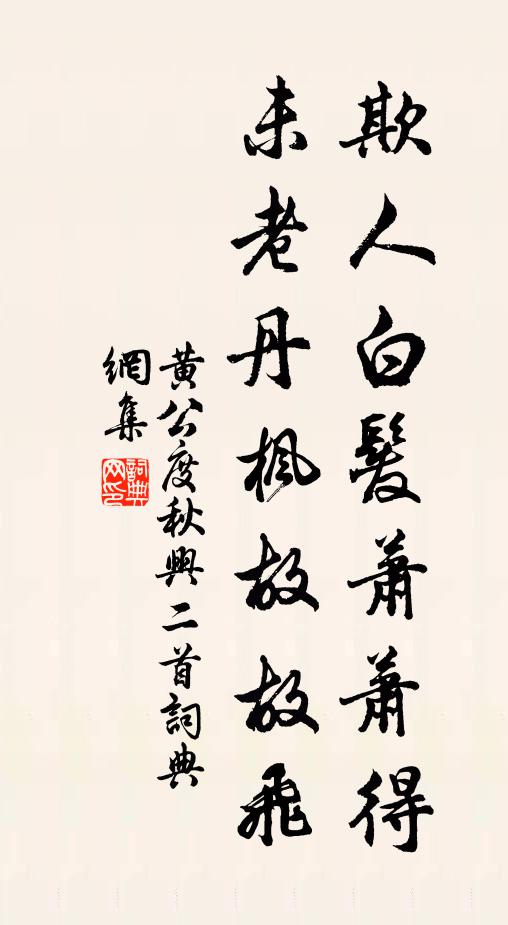 欺人白髮蕭蕭得
未老丹楓故故飛
黄公度秋興二首詞典
網集
詞典
网印